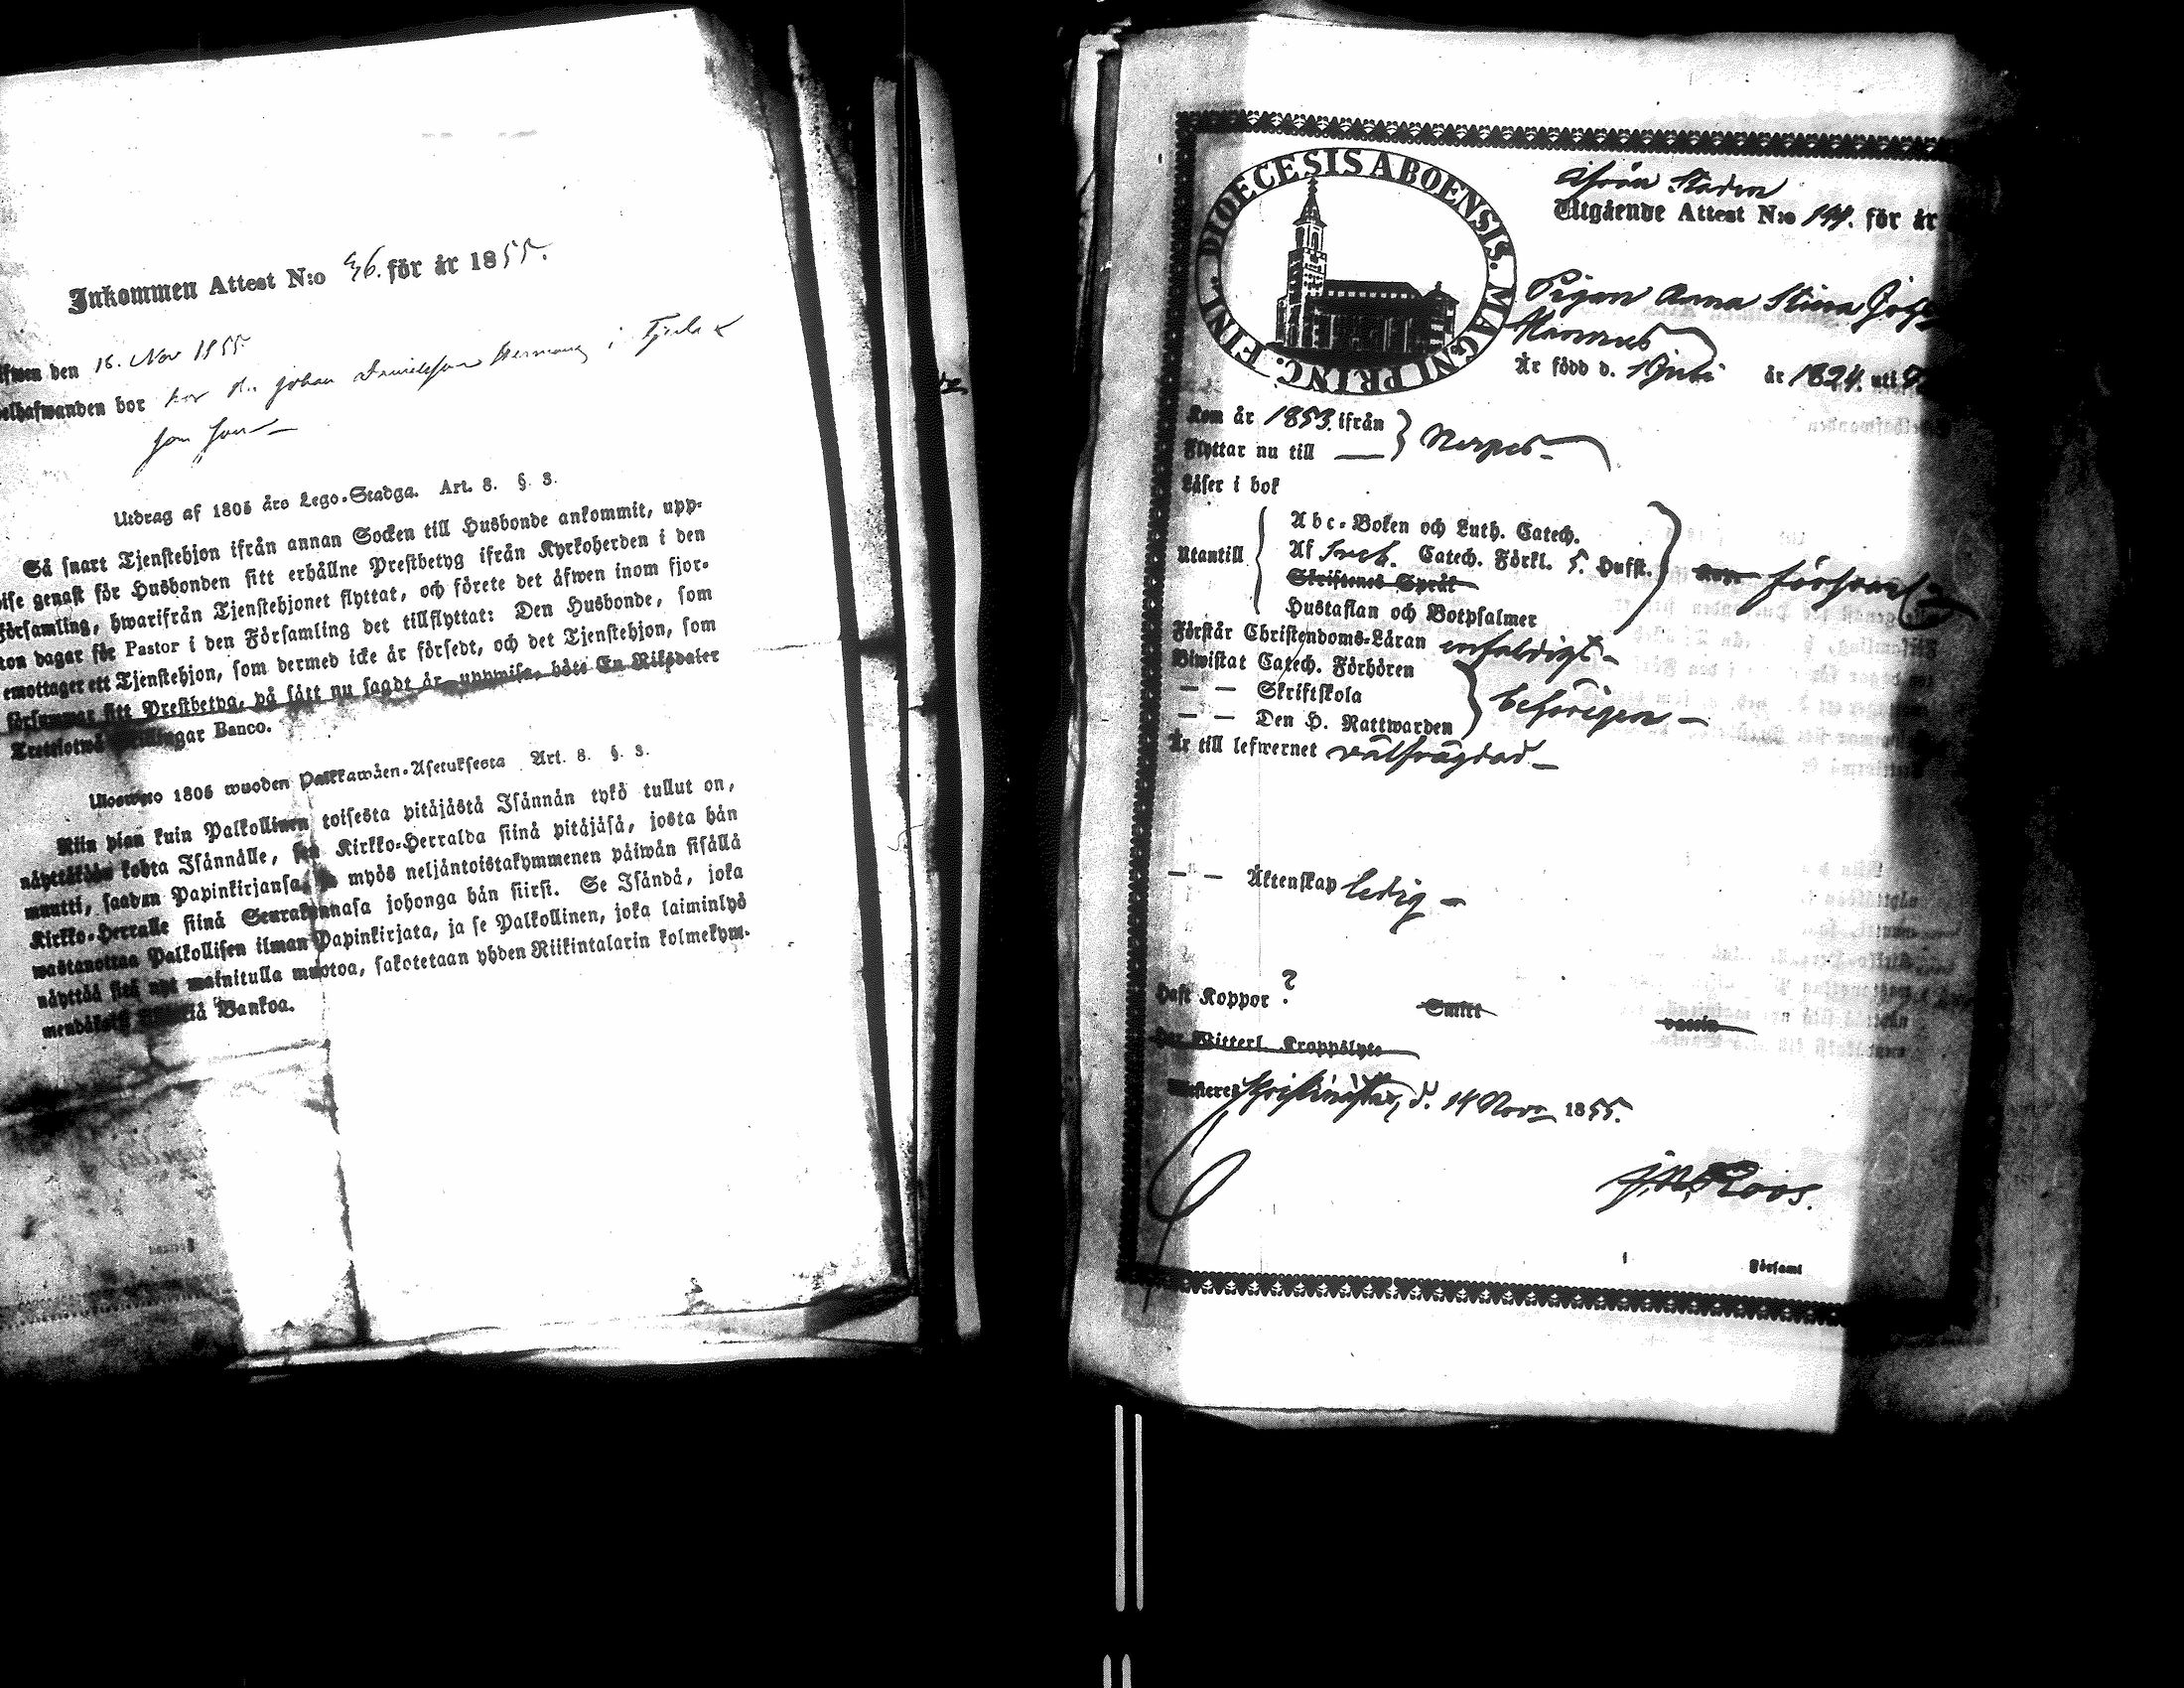 Inkommen Attest N:o 96. för år 1855.
den 16. Nov 1855
bor hos Johan Danielsson i
Utdrag af 1805 års Lego-Stadga. Art. 8. §. 3.
Så snart Tjenstehjon ifrån annan Socken till Husbonde ankommit, upp-
wise genast för Husbonden sitt erhållne Prestbetyg ifrån Kyrkoherden i den
Församling, hwarifrån Tjenstehjonet flyttat, och förete det äfwen inom fjor-
ton dagar för Pastor i den Församling det tillflyttat: Den Husbonde, som
emottager ett Tjenstehjon, som dermed icke är försedt, och det Tjenstehjon, som
försummar sitt Prestbetyg, på sätt nu sagdt är, uppwisa, böte En Riksdaler
Trettiotwå Skillingar Banco.
Ulosweto 1805 wuoden Palkkawäen-Asetuksesta Art. 8. §. 3.
Niin pian kuin Palkollinen toisesta pitäjästä Isännän tykö tullut on,
näyttäkään kohta Isännälle, sen Kirkko-Herralda siinä pitäjäsä, josta hän
muutti, saadun Papinkirjansa, myös neljäntoistakymmenen päiwän sisällä
Kirkko-Herralle siinä Seurakunnasa johonga hän siirsi. Se Isändä, joka
wastanottaa Palkollisen ilman Papinkirjata, ja se Palkollinen, joka laiminlyö
näyttää sitä nyt mainitulla muotoa, sakotetaan yhden Riikintalarin kolmekym-
mendäkaksi Bankoa.
DIOECESIS ABOENSIS. MAGNI PRINC. FINL.
ifrån Staden
Utgående Attest N:o 144. för år
Pigan Anna Stina Joh
Är född d. 1 Juni år 1824. uti
Kom år 1853. ifrån
Flyttar nu till — Nerpes
Läser i bok
Utantill
Abc-Boken och Luth. Catech.
Af Sveb. Catech. Förkl. 5. Hufst.
Skriftenes Språk
försvarl
Hustaflan och Botpsalmer
Förstår Christendoms-Läran enfaldigt
Biwistat Catech. Förhören
— — Skriftskola
behörigen
— — Den H. Nattwarden
Är till lefwernet välfrägdad
— — Äktenskap ledig
Haft Koppor ? Smitt vaccin
Har Witterl. Kroppslyte
Kristinestad, d. 14 Nov. 1855.
Roos.
Församl